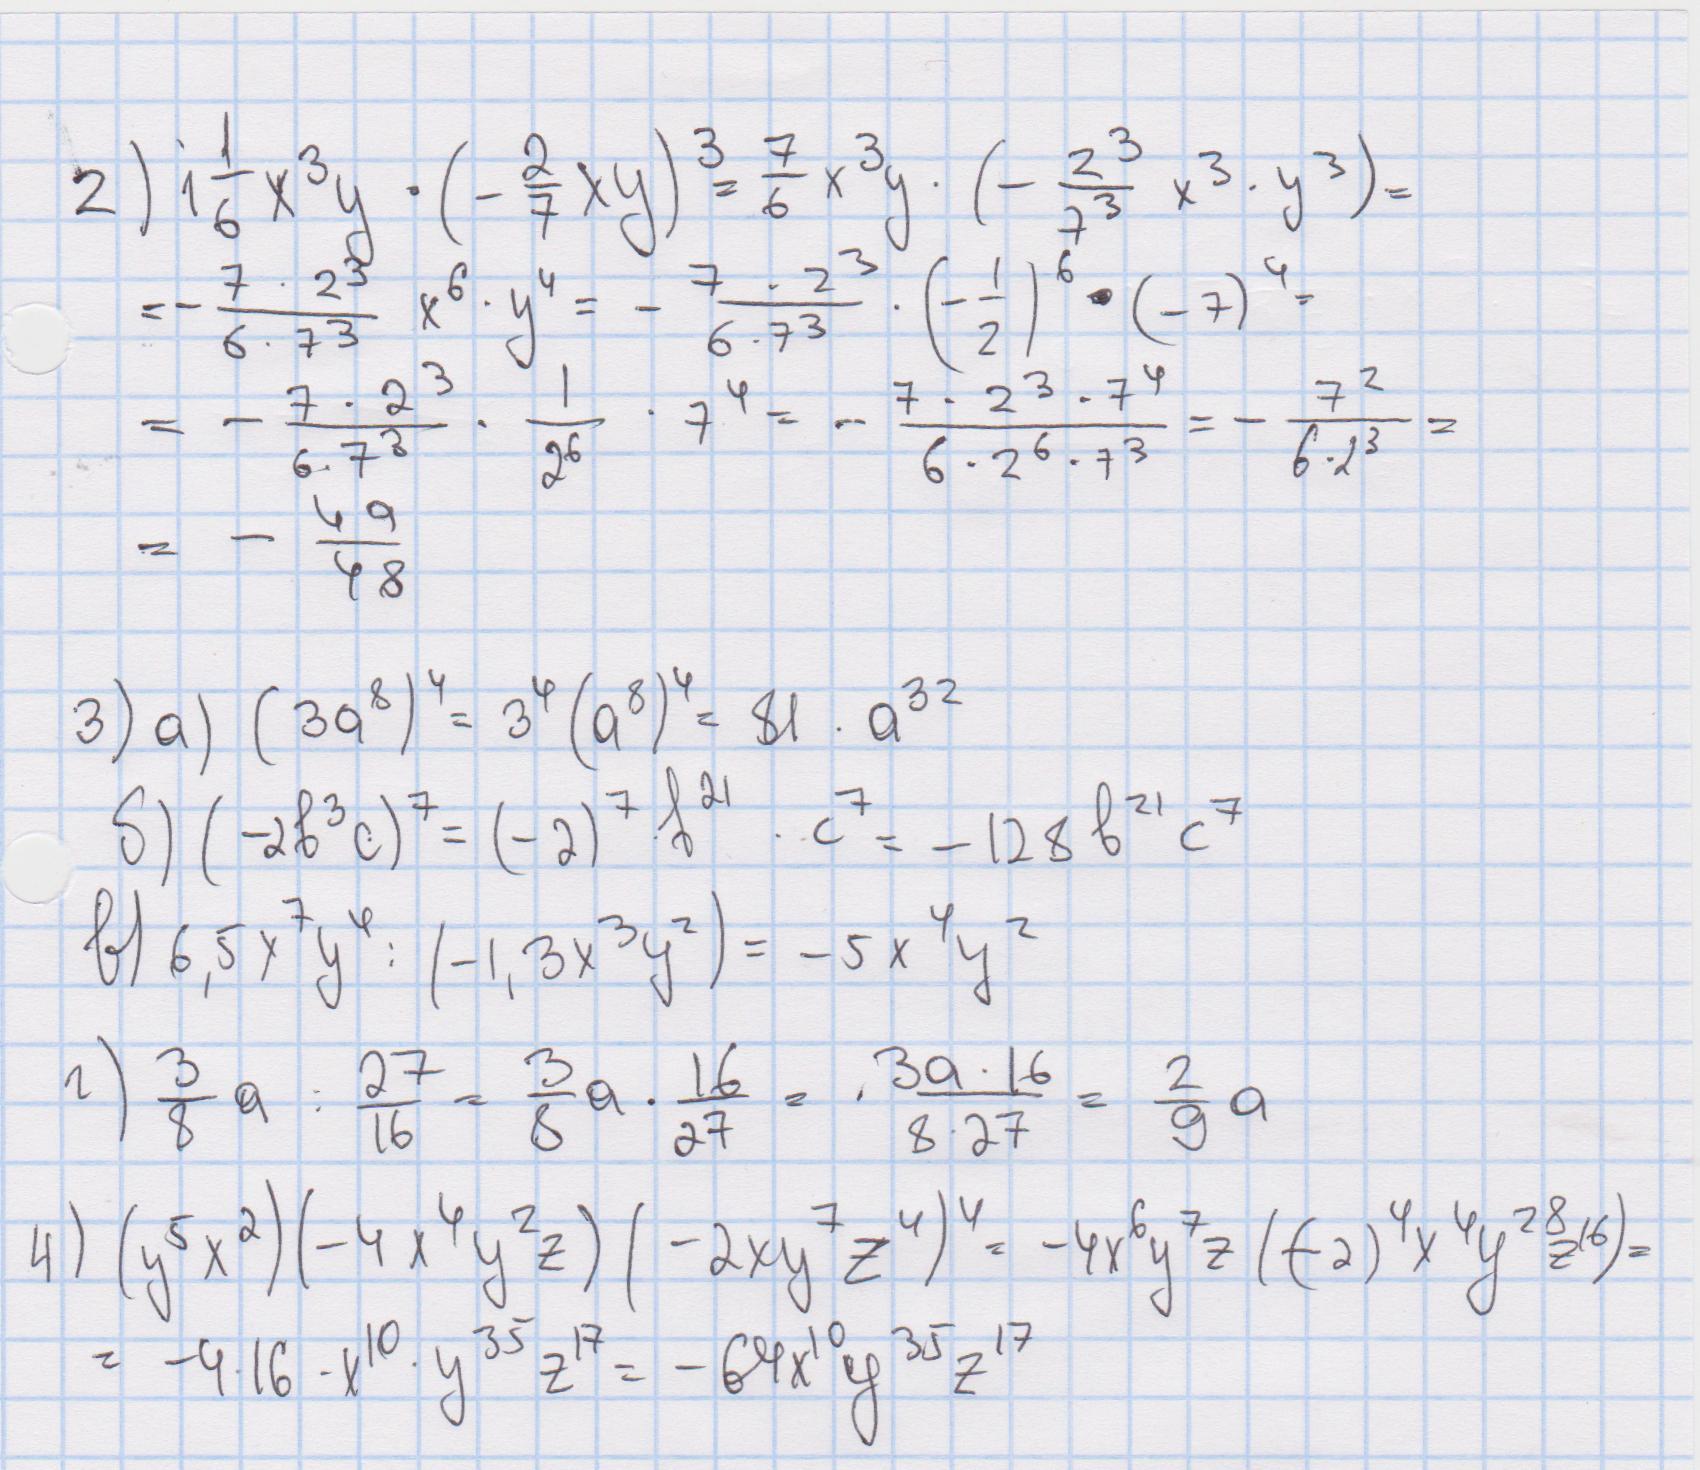 2) 1 1/6 x³y · (- 2/7 xy)³ = 7/6 x³y · (- 2³/7³ x³ · y³) =
= - (7 · 2³)/(6 · 7³) x⁶ · y⁴ = - (7 · 2³)/(6 · 7³) · (- 1/2)⁶ · (-7)⁴ =
= - (7 · 2³)/(6 · 7³) · 1/2⁶ · 7⁴ = - (7 · 2³ · 7⁴)/(6 · 2⁶ · 7³) = - 7²/(6 · 2³) =
= - 49/48
3) а) (3a⁸)⁴ = 3⁴(a⁸)⁴ = 81 · a³²
б) (-2b³c)⁷ = (-2)⁷ · b²¹ · c⁷ = -128 b²¹ c⁷
в) 6,5x⁷y⁴ : (-1,3x³y²) = -5x⁴y²
г) 3/8 a : 27/16 = 3/8 a · 16/27 = (3a · 16)/(8 · 27) = 2/9 a
4) (y⁵x²)(-4x⁴y²z)(-2xy⁷z⁴)⁴ = -4x⁶y⁷z((-2)⁴x⁴y²⁸z¹⁶) =
= -4 · 16 · x¹⁰ · y³⁵z¹⁷ = -64x¹⁰y³⁵z¹⁷